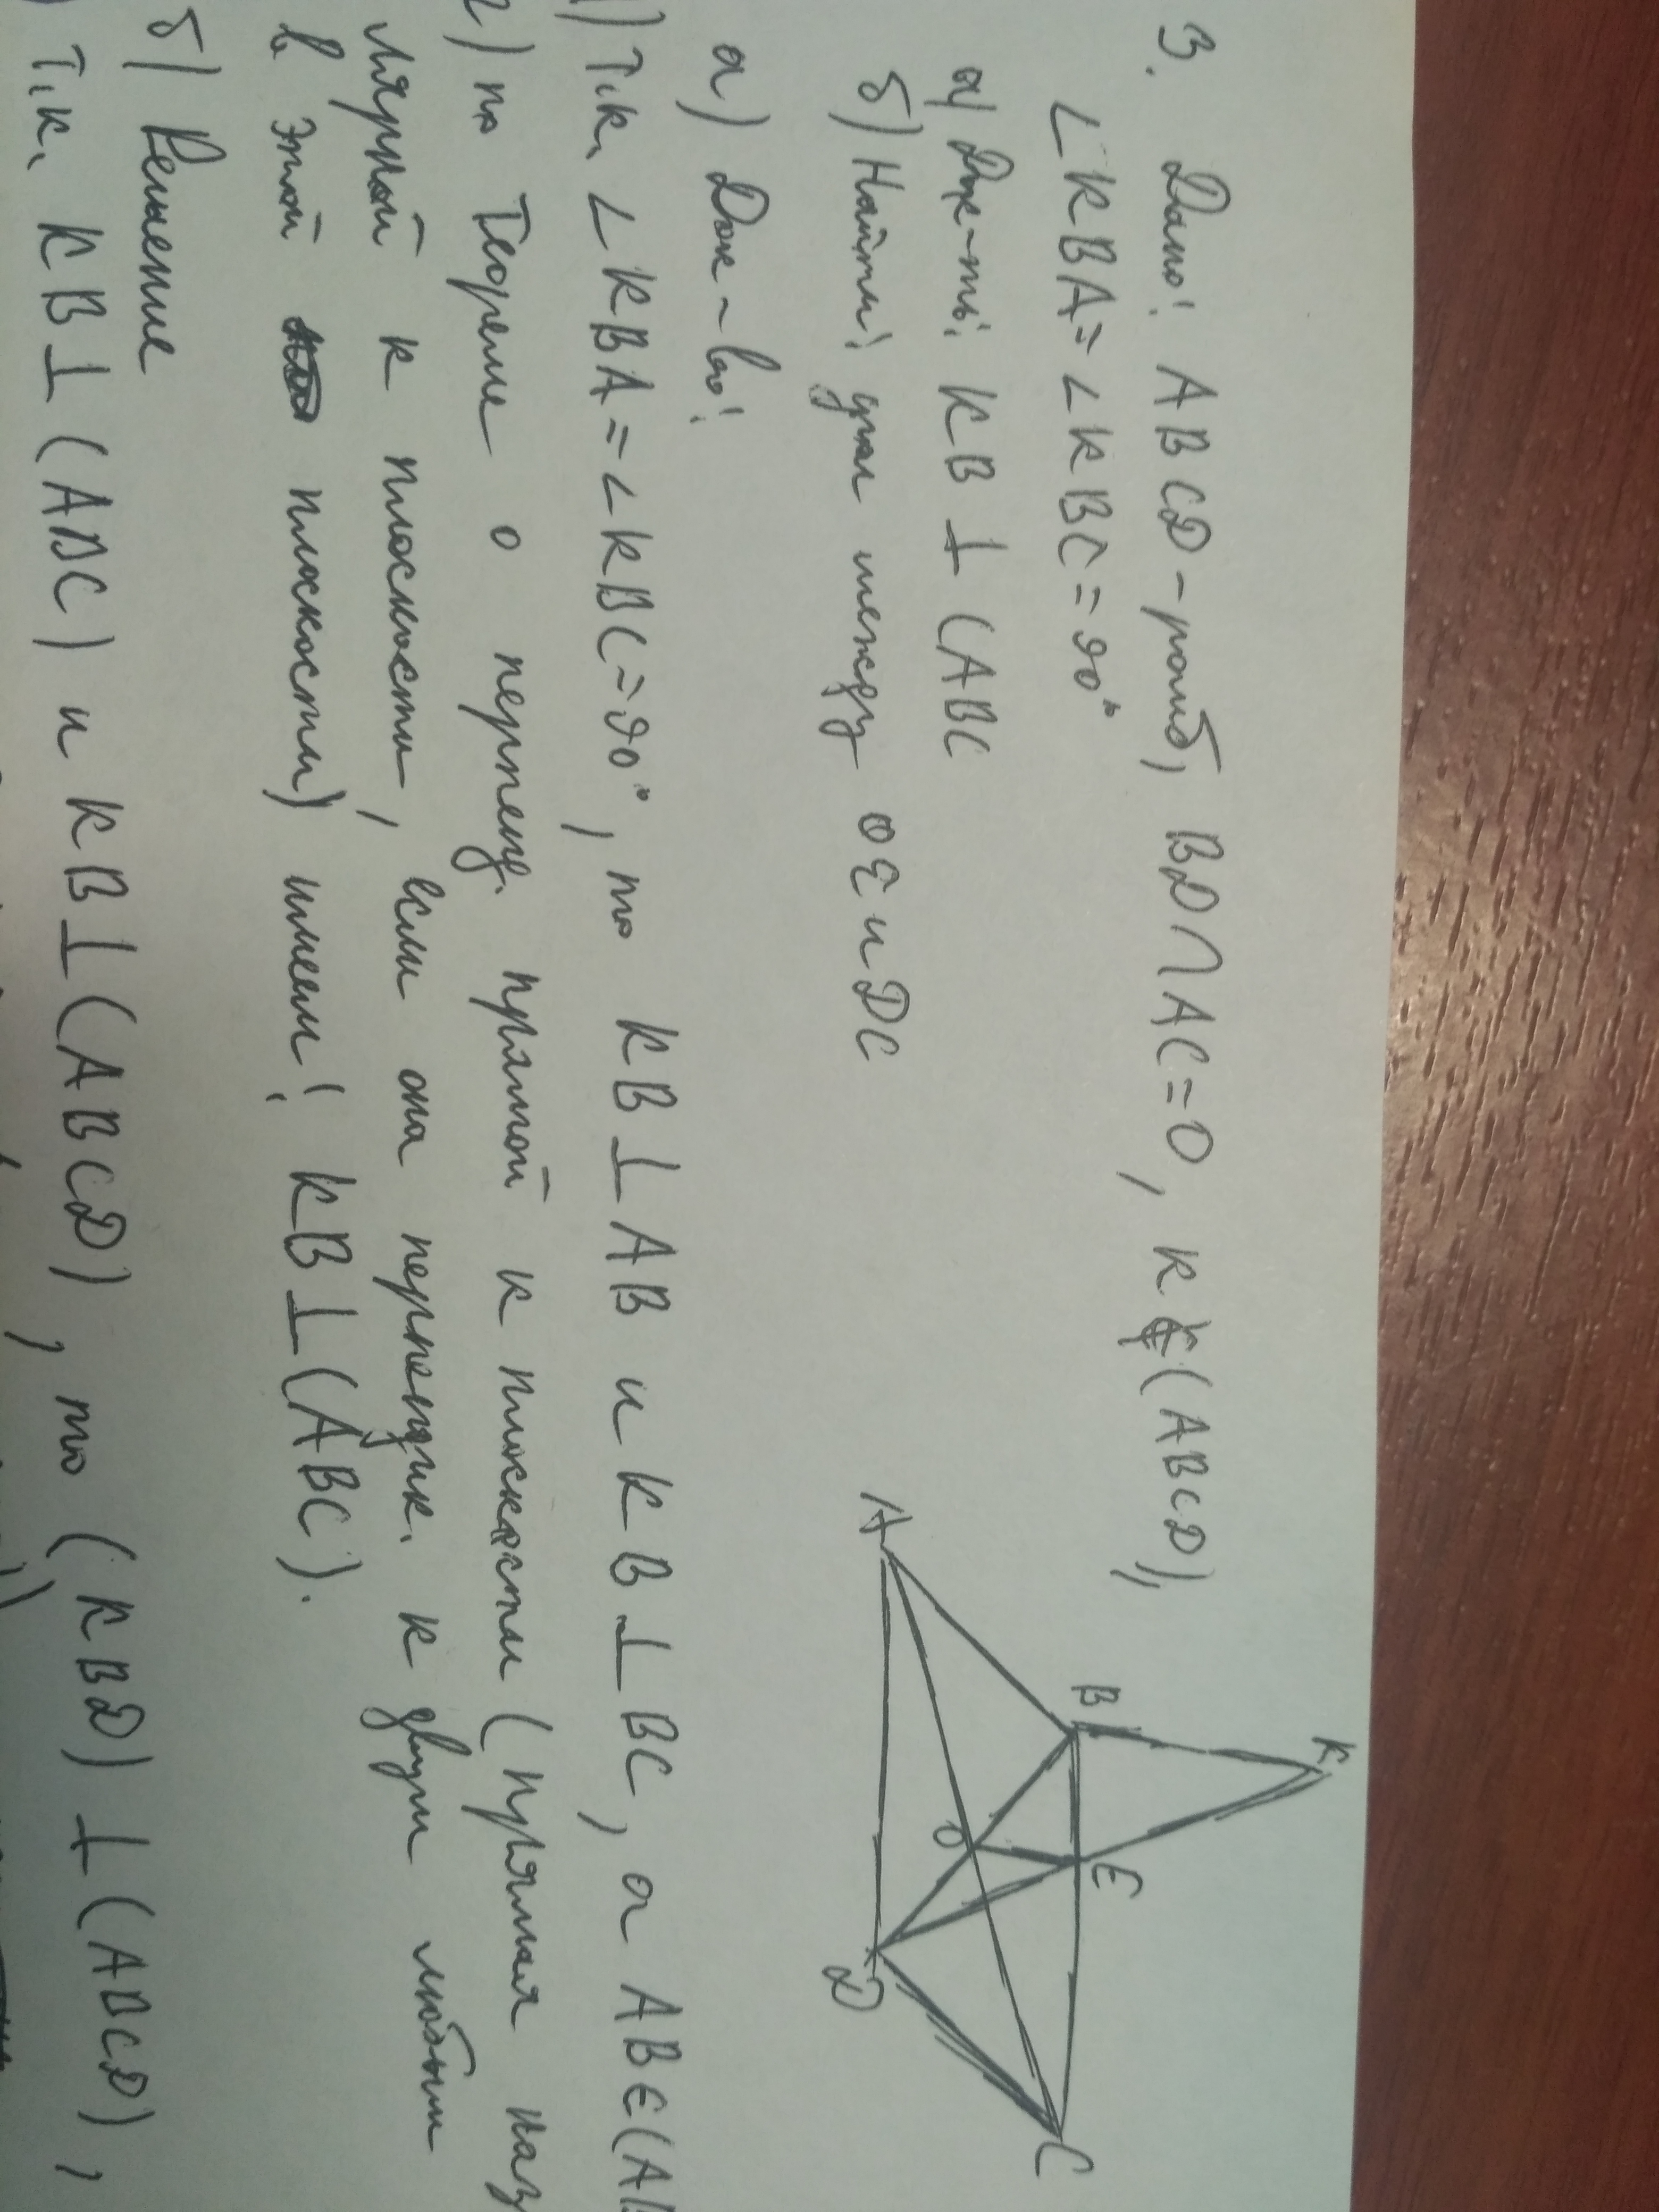 3. Дано: ABCD - ромб, BD ∩ AC = O, K ∉ (ABCD),
∠KBA = ∠KBC = 90°
а) Док-ть: KB ⊥ (ABC
б) Найти: угол между OE и DC
A
B
K
O
E
D
C
а) Док-во:
1) Т.к. ∠KBA = ∠KBC = 90°, то KB ⊥ AB и KB ⊥ BC, а AB ∈ (AB
2) по Теореме о перпенд. прямой к плоскости (прямая наз
лярной к плоскости, если она перпендик. к двум любым
в этой плоскости) имеем: KB ⊥ (ABC).
б) Решение
) Т.к. KB ⊥ (ABC) и KB ⊥ (ABCD), то (KBD) ⊥ (ABCD),